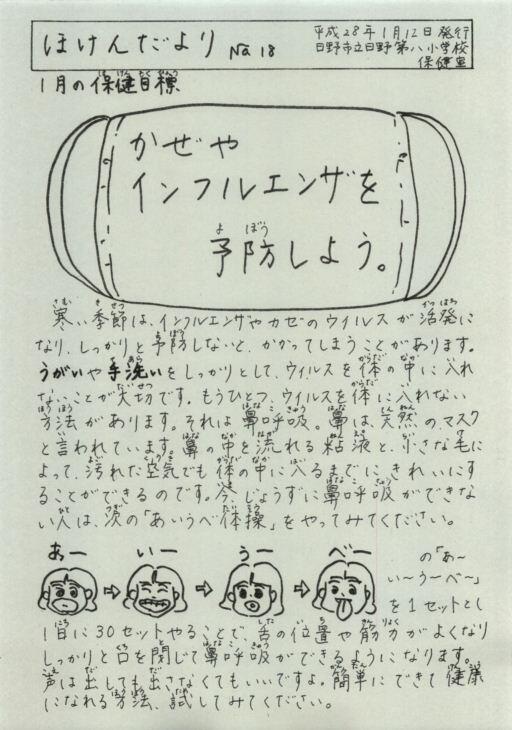 ほけんだより No.18
平成28年1月12日発行
日野市立日野第八小学校
保健室
1月の保健目標
かぜや
インフルエンザを
予防しよう。
寒い季節は、インフルエンザやカゼのウイルスが活発に
なり、しっかりと予防しないと、かかってしまうことがあります。
うがいや手洗いをしっかりとして、ウイルスを体の中に入れ
ないことが大切です。もうひとつ、ウイルスを体に入れない
方法があります。それは鼻呼吸。鼻は、天然のマスク
と言われています。鼻の中を流れる粘液と、小さな毛に
よって、汚れた空気でも体の中に入るまでにきれいにす
ることができるのです。今、じょうずに鼻呼吸ができな
い人は、次の「あいうべ体操」をやってみてください。
あー ⇨ いー ⇨ うー ⇨ べー
の「あ~
い~う~べ~」
を1セットとし
1日に30セットやることで、舌の位置や筋力がよくなり
しっかりと口を閉じて鼻呼吸ができるようになります。
声は出しても出さなくてもいいですよ。簡単にできて健康
になれる方法、試してみてください。